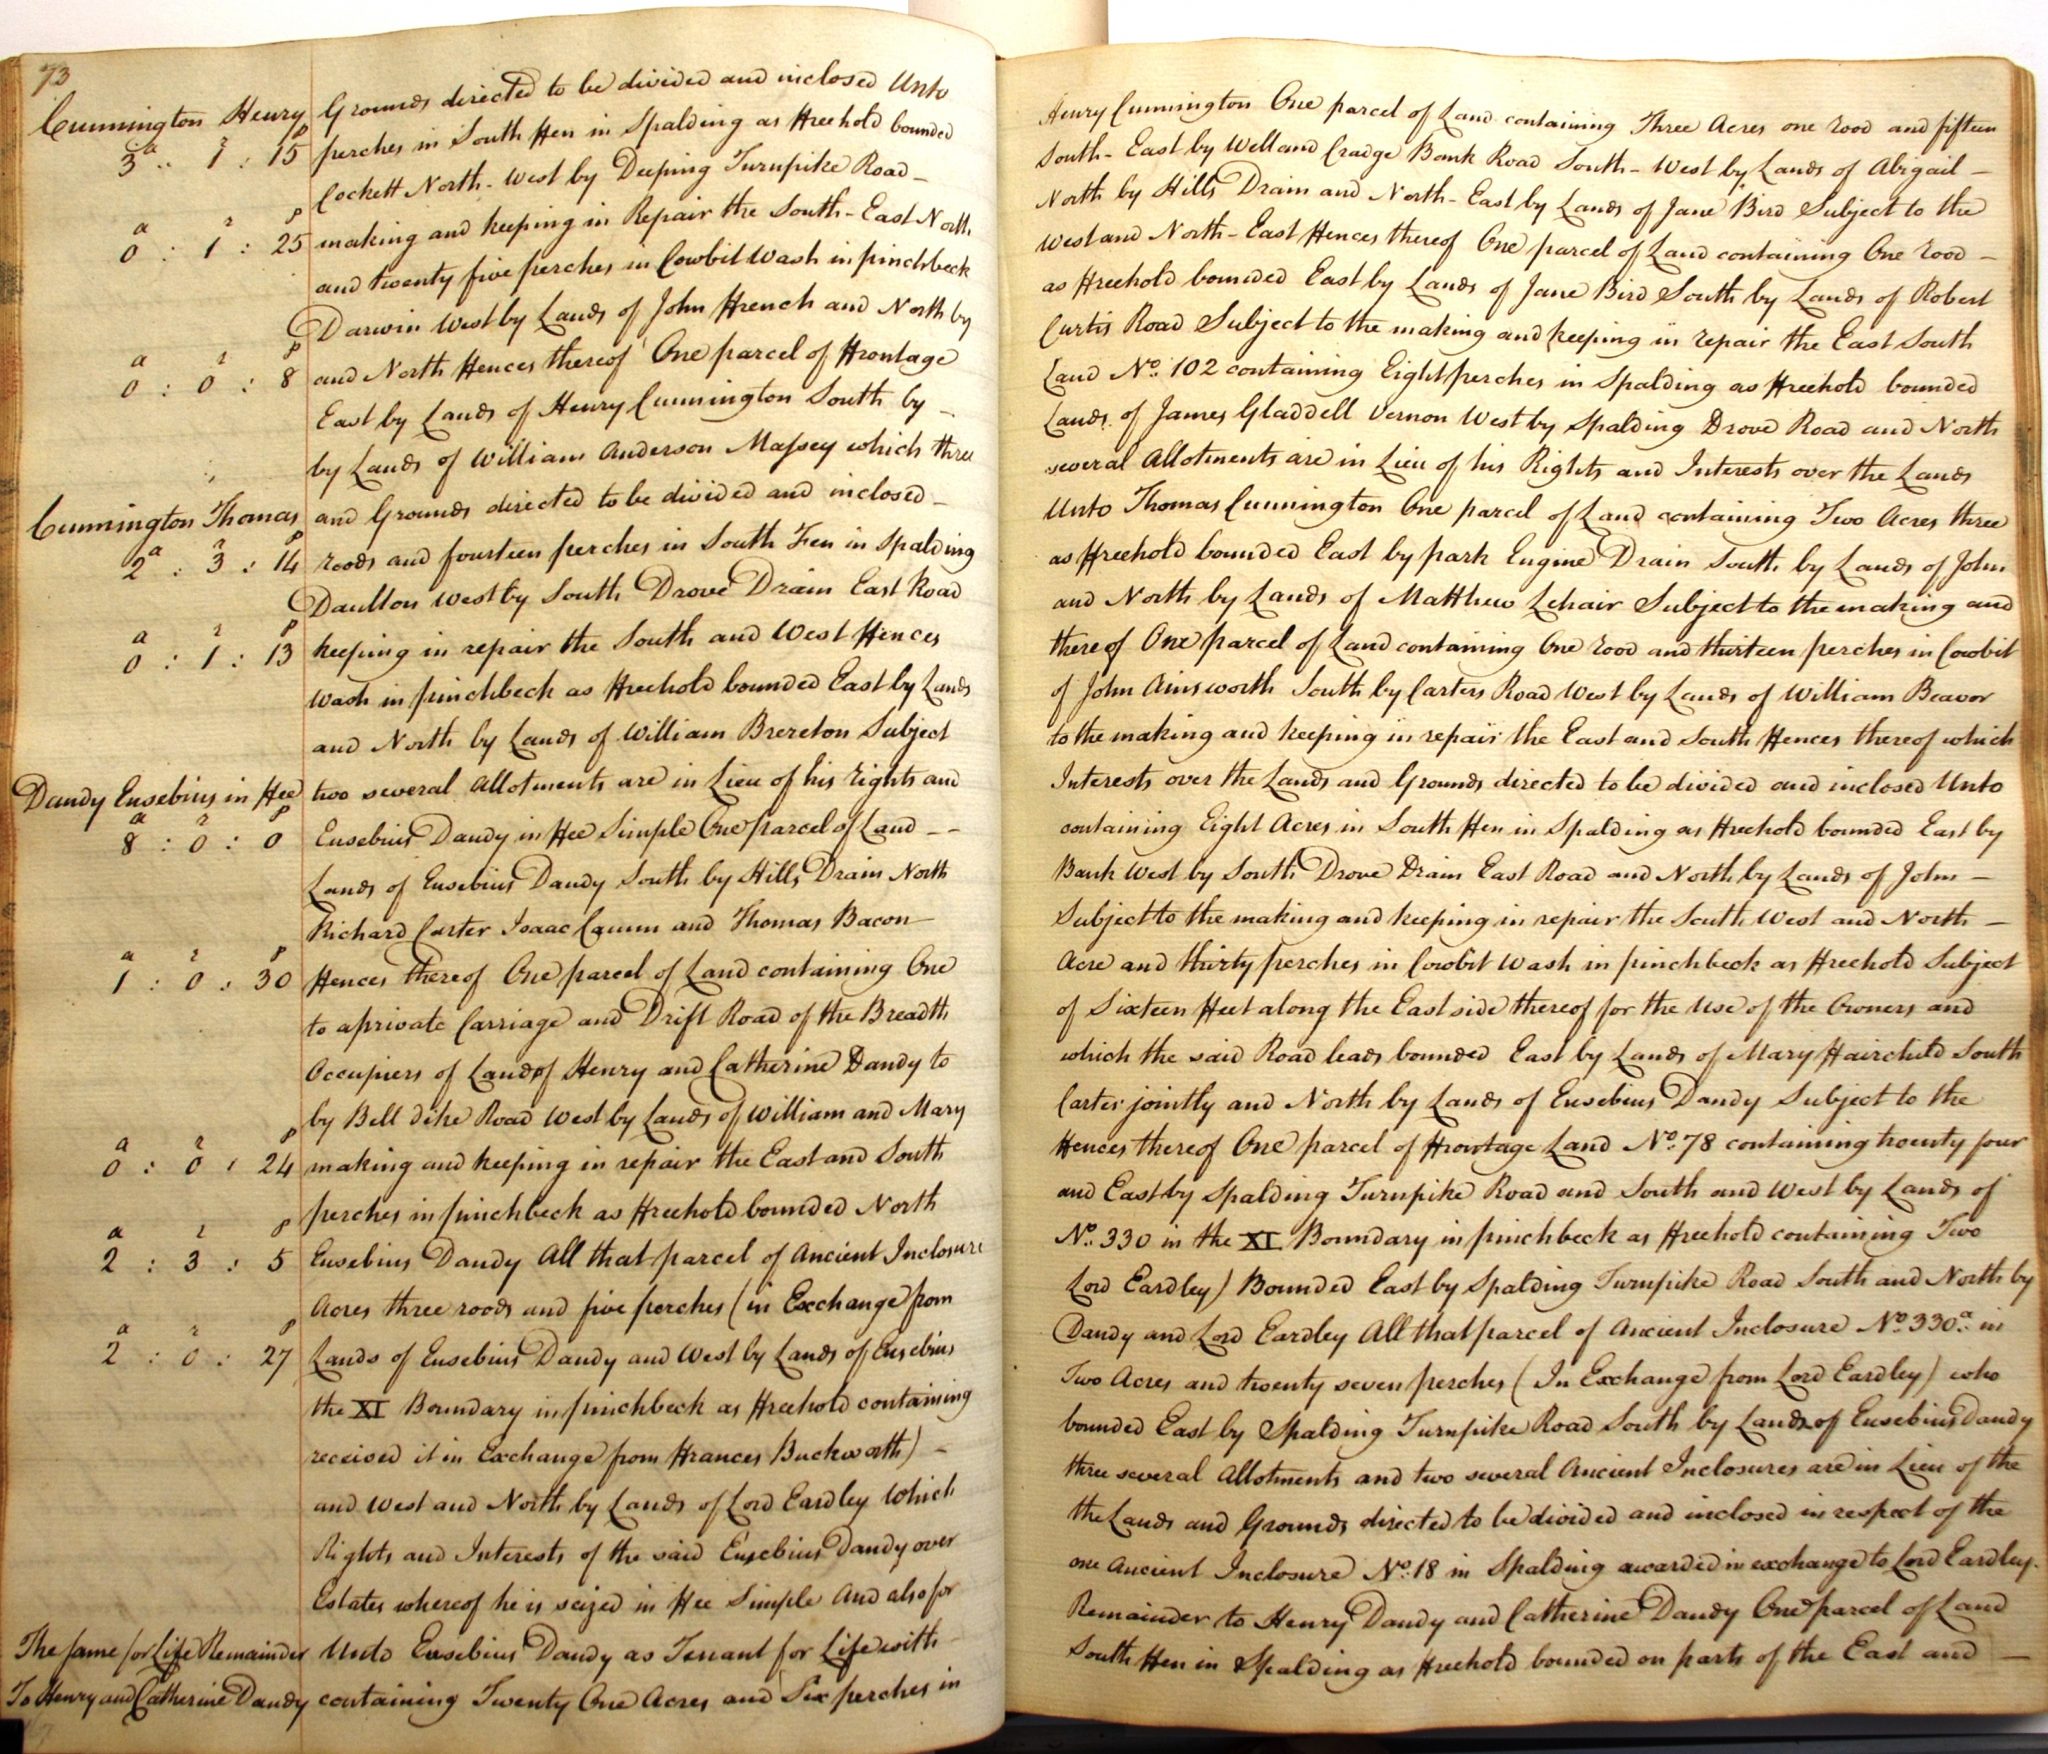 73
Cunnington Henry Grounds directed to be divided and inclosed Unto Henry Cunnington One parcel of Land containing Three Acres one rood and fifteen
a r p
3 : 1 : 15 perches in South Fen in Spalding as Freehold bounded South-East by Welland Cradge Bank Road South-West by Lands of Abigail –
Cockett North-West by Deeping Turnpike Road – North by Hills Drain and North-East by Lands of Jane Bird Subject to the
making and keeping in Repair the South-East North West and North-East Fences thereof One parcel of Land containing One rood –
a r p
0 : 1 : 25 and twenty five perches in Cowbit Wash in pinchbeck as Freehold bounded East by Lands of Jane Bird South by Lands of Robert
Darwin West by Lands of John French and North by Curtis Road Subject to the making and keeping in repair the East South
and North Fences thereof One parcel of Frontage Land No. 102 containing Eight perches in Spalding as Freehold bounded
a r p
0 : 0 : 8 East by Lands of Henry Cunnington South by – Lands of James Gladdell Vernon West by Spalding Drove Road and North
by Lands of William Anderson Massey which three several Allotments are in Lieu of his Rights and Interests over the Lands
Cunnington Thomas and Grounds directed to be divided and inclosed – Unto Thomas Cunnington One parcel of Land containing Two Acres three
a r p
2 : 3 : 14 roods and fourteen perches in South Fen in Spalding as Freehold bounded East by park Engine Drain South by Lands of John
Daulton West by South Drove Drain East Road and North by Lands of Matthew Lehair Subject to the making and
a r p
0 : 1 : 13 keeping in repair the South and West Fences thereof One parcel of Land containing One rood and thirteen perches in Cowbit
Wash in pinchbeck as Freehold bounded East by Lands of John Ainsworth South by Carters Road West by Lands of William Beavor
and North by Lands of William Brereton Subject to the making and keeping in repair the East and South Fences thereof which
Dandy Eusebius in Fee two several Allotments are in Lieu of his rights and Interests over the Lands and Grounds directed to be divided and inclosed Unto
a r p
8 : 0 : 0 Eusebius Dandy in Fee Simple One parcel of Land – – containing Eight Acres in South Fen in Spalding as Freehold bounded East by
Lands of Eusebius Dandy South by Hills Drain North Bank West by South Drove Drain East Road and North by Lands of John –
Richard Carter Isaac Caumn and Thomas Bacon – Subject to the making and keeping in repair the South West and North –
a r p
1 : 0 : 30 Fences thereof One parcel of Land containing One Acre and thirty perches in Cowbit Wash in pinchbeck as Freehold Subject
to a private Carriage and Drift Road of the Breadth of Sixteen Feet along the East side thereof for the Use of the Owners and
Occupiers of Lands of Henry and Catherine Dandy to which the said Road leads bounded East by Lands of Mary Fairchild South
by Bell dike Road West by Lands of William and Mary Carter jointly and North by Lands of Eusebius Dandy Subject to the
a r p
0 : 0 : 24 making and keeping in repair the East and South Fences thereof One parcel of Frontage Land No. 78 containing twenty four
perches in pinchbeck as Freehold bounded North and East by Spalding Turnpike Road and South and West by Lands of
a r p
2 : 3 : 5 Eusebius Dandy All that parcel of Ancient Inclosure No. 330 in the XI Boundary in pinchbeck as Freehold containing Two
Acres three roods and five perches (in Exchange from Lord Eardley) Bounded East by Spalding Turnpike Road South and North by
a r p
2 : 0 : 27 Lands of Eusebius Dandy and West by Lands of Eusebius Dandy and Lord Eardley All that parcel of Ancient Inclosure No. 330a. in
the XI Boundary in pinchbeck as Freehold containing Two Acres and twenty seven perches (In Exchange from Lord Eardley) who
received it in Exchange from Frances Buckworth) – bounded East by Spalding Turnpike Road South by Lands of Eusebius Dandy
and West and North by Lands of Lord Eardley Which three several Allotments and two several Ancient Inclosures are in Lieu of the
Rights and Interests of the said Eusebius Dandy over the Lands and Grounds directed to be divided and inclosed in respect of the
Estates whereof he is seized in Fee Simple And also for one Ancient Inclosure No. 18 in Spalding awarded in exchange to Lord Eardley.
The Same for Life Remainder Unto Eusebius Dandy as Tenant for Life with Remainder to Henry Dandy and Catherine Dandy One parcel of Land
To Henry and Catherine Dandy containing Twenty One Acres and Six perches in South Fen in Spalding as Freehold bounded on parts of the East and –